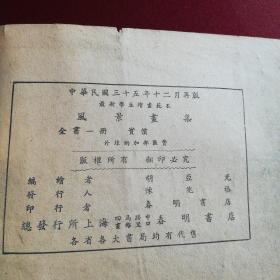 中華民國三十五年十二月再版
最新學生繪畫範本
風景畫集
全書一冊 實價
外埠酌加郵匯費
版權所有 翻印必究
編繪者 胡亞光
發行人 陳兆椿
印行者 春明書店
總發行所上海四馬路中西口春明書店
各省各大書局均有代售